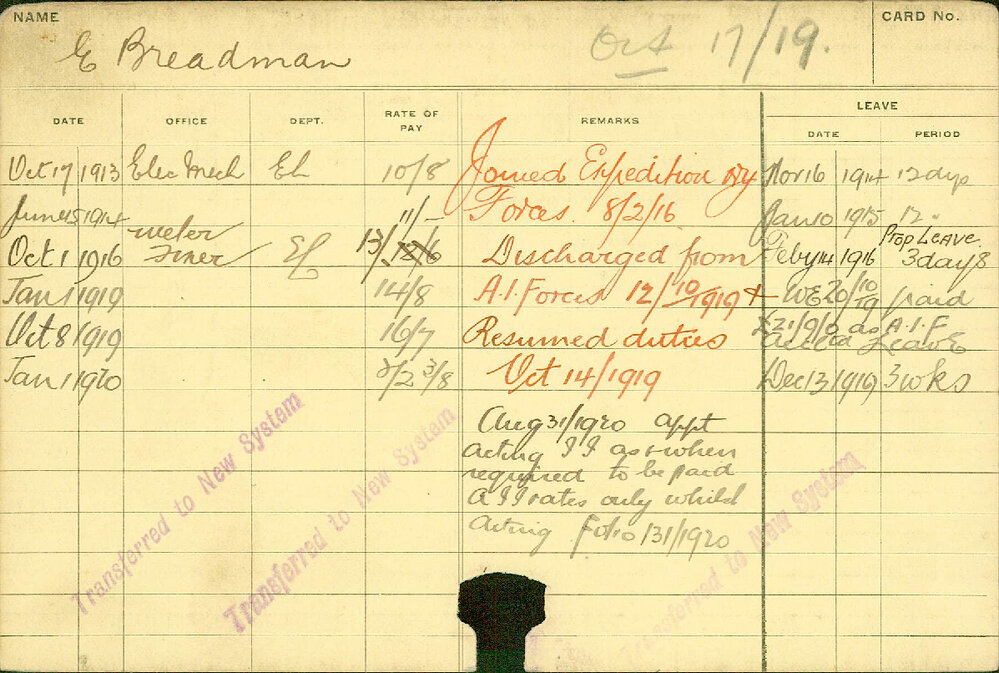 NAME
E Breadman
Oct 17/19.
CARD No.
DATE OFFICE DEPT. RATE OF PAY REMARKS LEAVE
DATE PERIOD
Oct 17 1913 Elec Mech El 10/8 Joined Expedition ary Nov 16 1914 12 days
June 15 1914 11/- Forces. 8/2/16 Jan 10 1915 12 "
Oct 1 1916 meter Finer El 13/ 12/6 Discharged from Feby 14 1916 Prop Leave. 3 days
Jan 1 1919 14/8 A.I. Forces 12/10/1919 + WE 20/10/19 paid
Oct 8 1919 16/7 Resumed duties £21/9/0 as A.I.F
Leave
Jan 1 1920 3/8 Oct 14/1919 Dec 13 1919 3 wks
Aug 31/1920 appt
acting II as & when
required to be paid
A II rates only whilst
acting Folio /31/1920
Transferred to New System
Transferred to New System
Transferred to New System